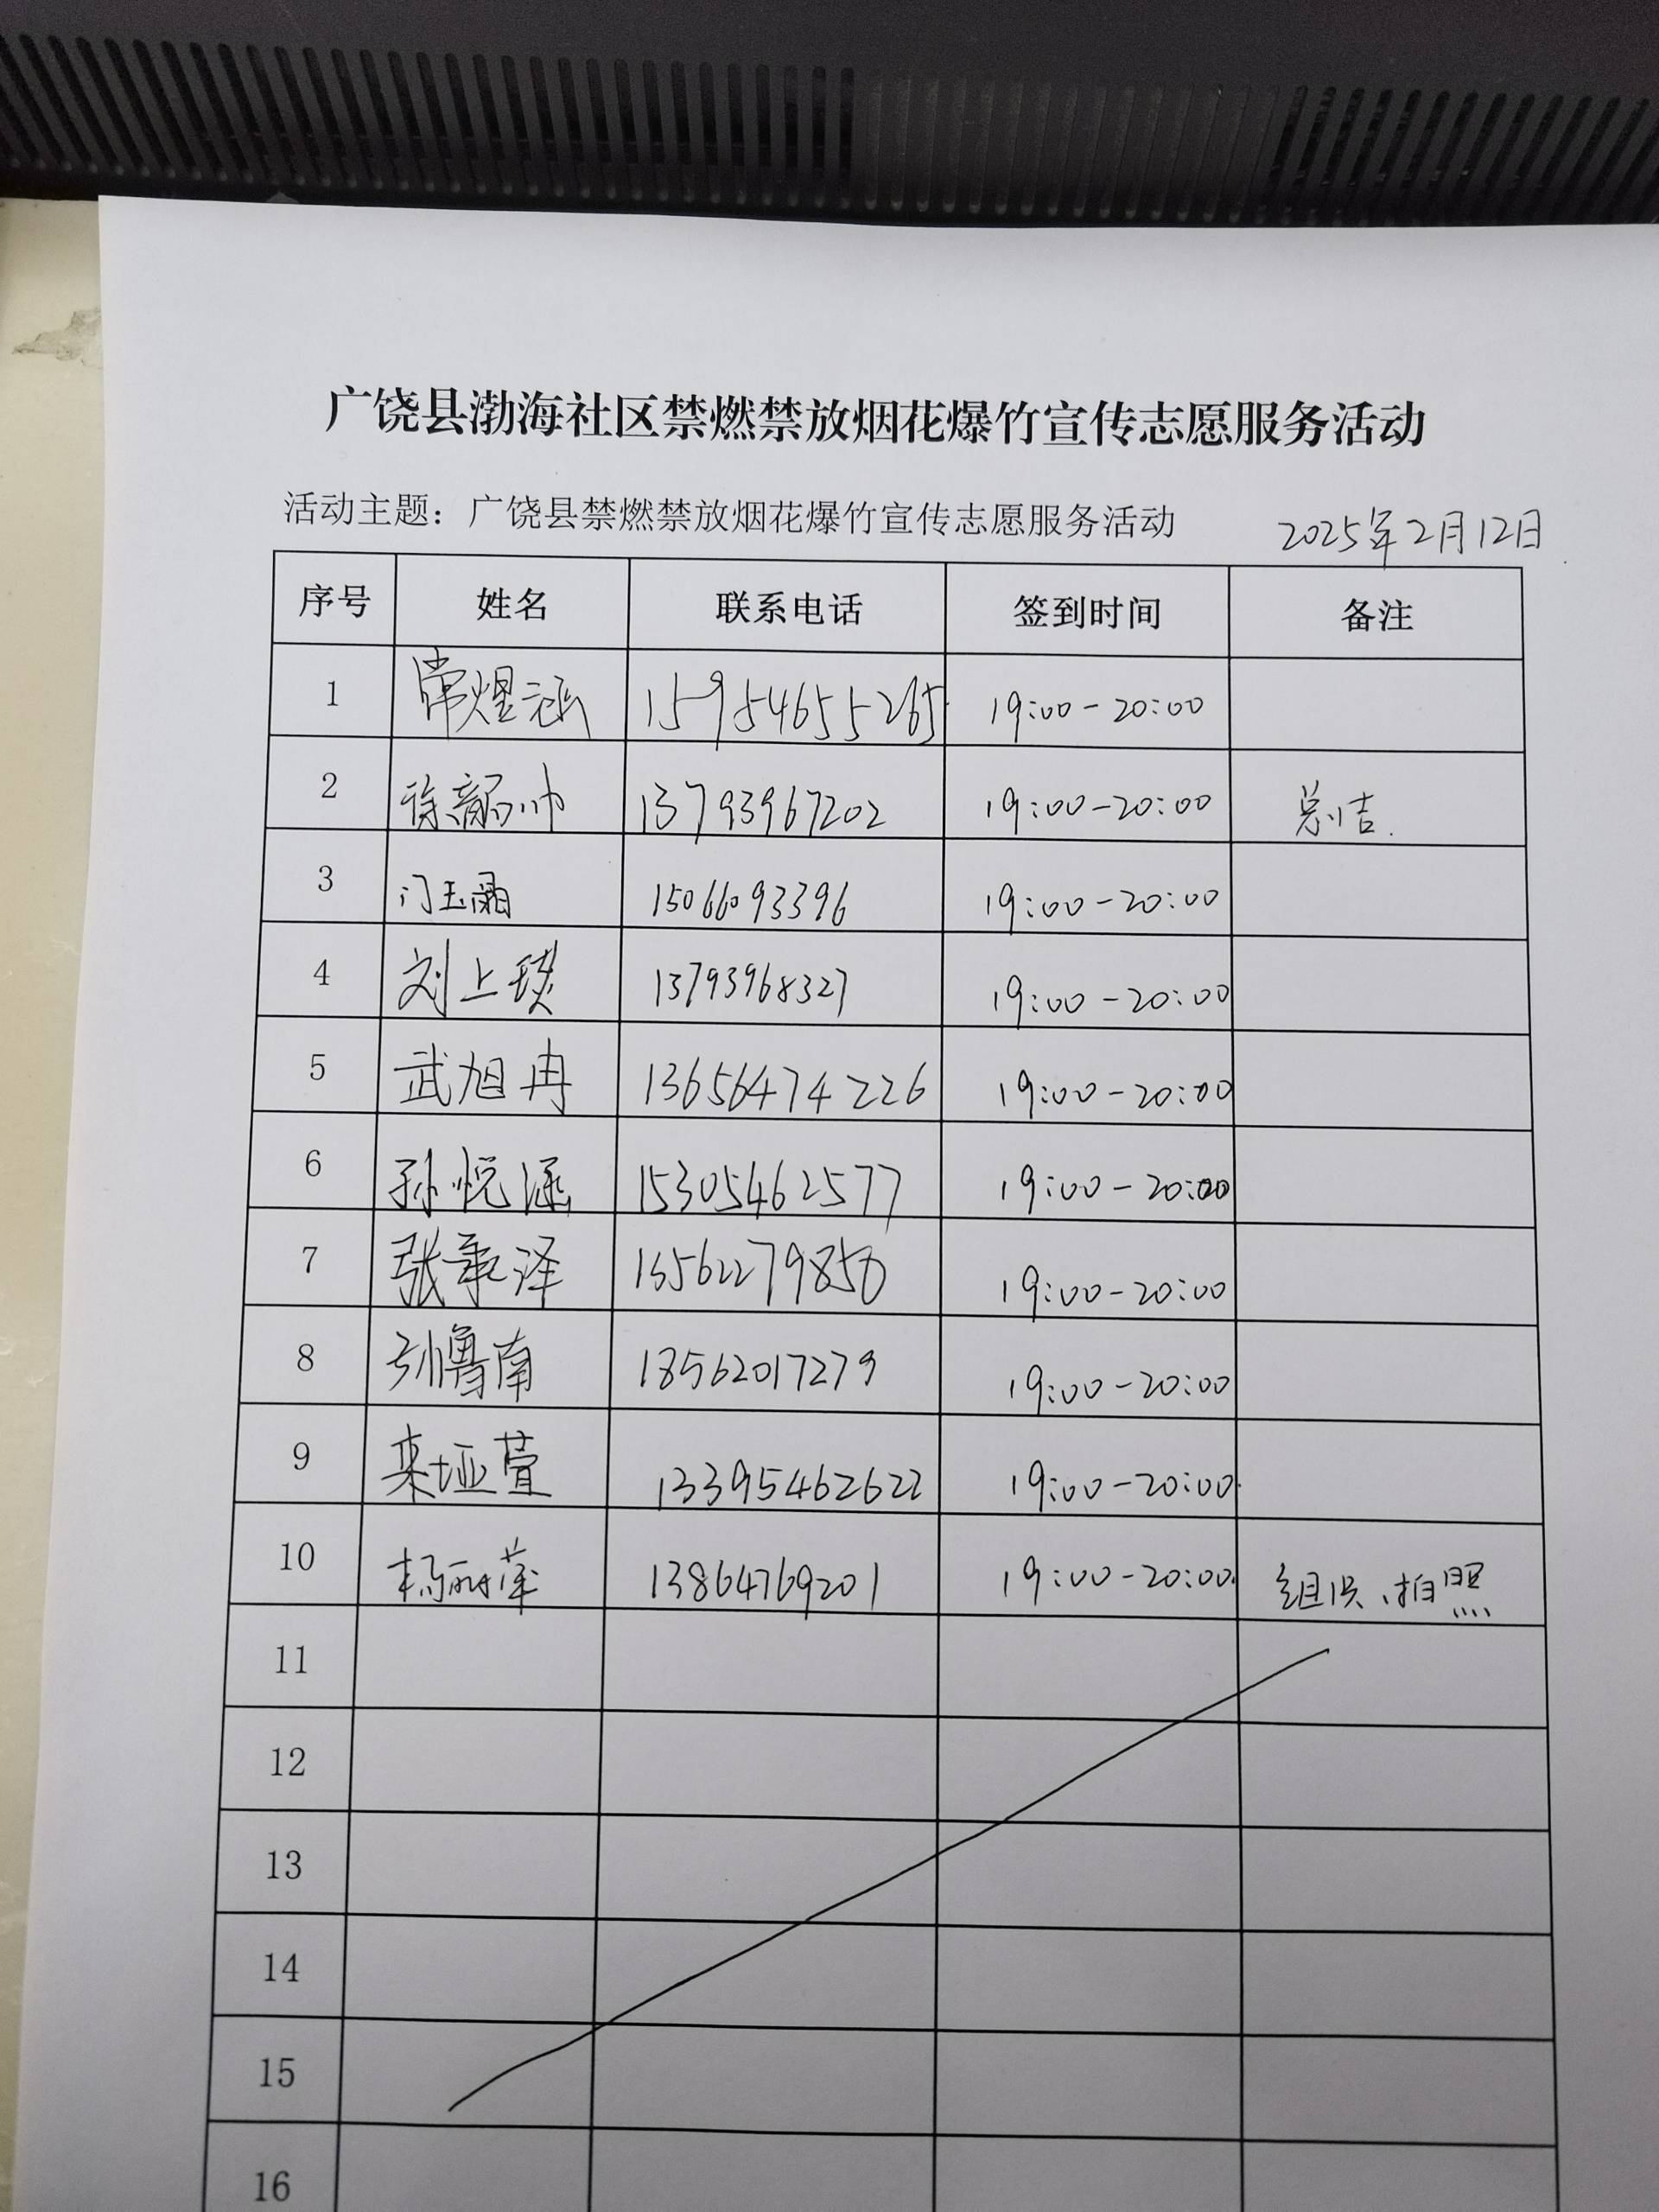 广饶县渤海社区禁燃禁放烟花爆竹宣传志愿服务活动
活动主题：广饶县禁燃禁放烟花爆竹宣传志愿服务活动 2025年2月12日
序号 姓名 联系电话 签到时间 备注
1 常煜涵 15954655265 19:00-20:00
2 徐韶帅 13793967202 19:00-20:00 总结.
3 门玉霜 15066093396 19:00-20:00
4 刘上琰 13793968327 19:00-20:00
5 武旭冉 13656474226 19:00-20:00
6 孙悦涵 15305462577 19:00-20:00
7 张秉泽 19:00-20:00
8 孙鲁南 18562017279 19:00-20:00
9 栾垭萱 13395462622 19:00-20:00
10 杨丽萍 13864769201 19:00-20:00 组织、拍照
11
12
13
14
15
16